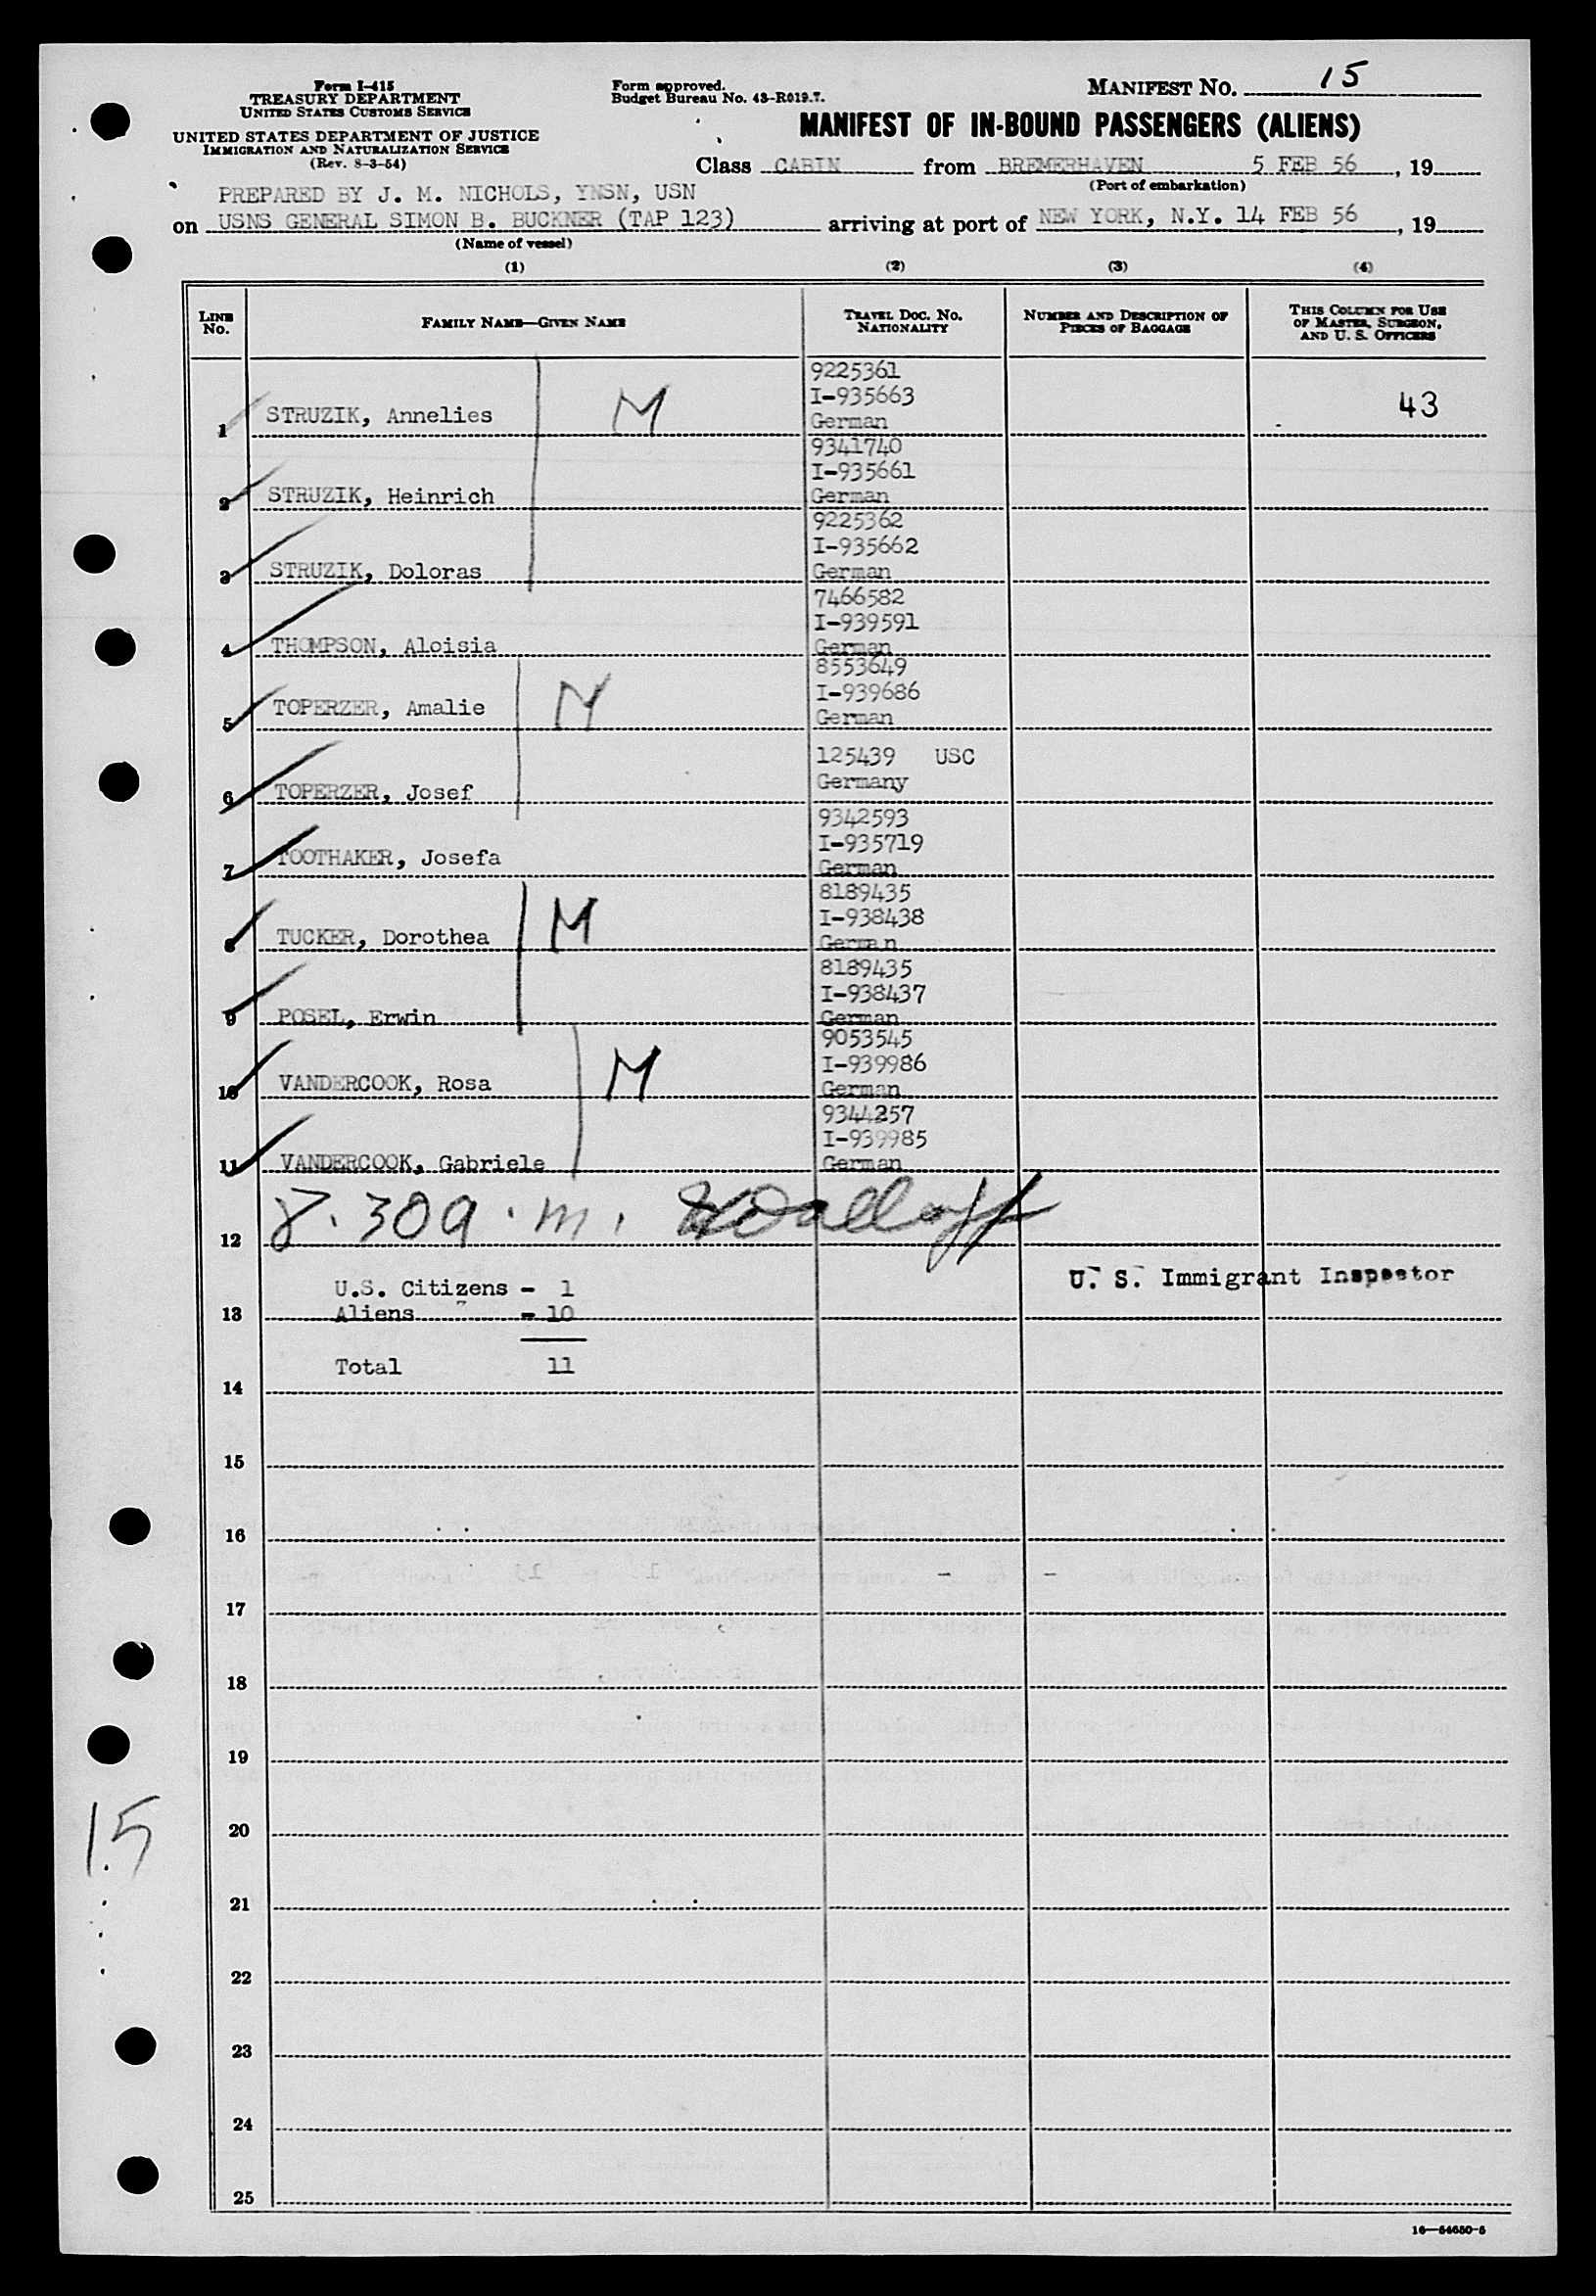 Form I-415
TREASURY DEPARTMENT
UNITED STATES CUSTOMS SERVICE
UNITED STATES DEPARTMENT OF JUSTICE
IMMIGRATION AND NATURALIZATION SERVICE
(Rev. 8-3-54)
Form approved.
Budget Bureau No. 43-R019.7.
MANIFEST NO. 15
MANIFEST OF IN-BOUND PASSENGERS (ALIENS)
Class CABIN from BREMERHAVEN 5 FEB 56, 19
(Port of embarkation)
PREPARED BY J. M. NICHOLS, YNSN, USN
on USNS GENERAL SIMON B. BUCKNER (TAP 123) arriving at port of NEW YORK, N.Y. 14 FEB 56, 19
(Name of vessel)
(1) (2) (3) (4)
LINE NO. FAMILY NAME—GIVEN NAME TRAVEL DOC. NO. NATIONALITY NUMBER AND DESCRIPTION OF PIECES OF BAGGAGE THIS COLUMN FOR USE OF MASTER, SURGEON, AND U. S. OFFICERS
9225361
I-935663
1 STRUZIK, Annelies M German 43
9341740
I-935661
2 STRUZIK, Heinrich German
9225362
I-935662
3 STRUZIK, Doloras German
7466582
I-939591
4 THOMPSON, Aloisia German
8553649
I-939686
5 TOPERZER, Amalie M German
125439 USC
6 TOPERZER, Josef Germany
9342593
I-935719
7 TOOTHAKER, Josefa German
8189435
I-938438
8 TUCKER, Dorothea M German
8189435
I-938437
9 POSEL, Erwin German
9053545
I-939986
10 VANDERCOOK, Rosa M German
9344257
I-939985
11 VANDERCOOK, Gabriele German
12 8.30a.m.
U. S. Immigrant Inspector
U.S. Citizens - 1
13 Aliens - 10
Total 11
14
15
16
17
18
19
15
20
21
22
23
24
25
16—54650-5